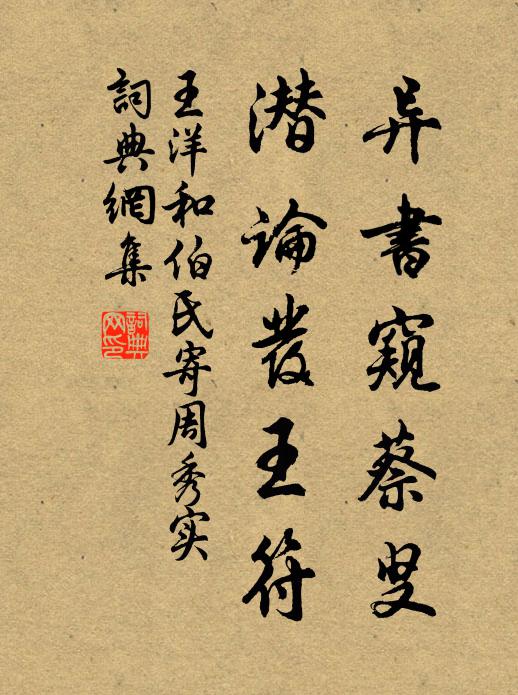 异書窺蔡叟
潜論發王符
王洋和伯氏寄周秀实
詞典網集
詞典网印